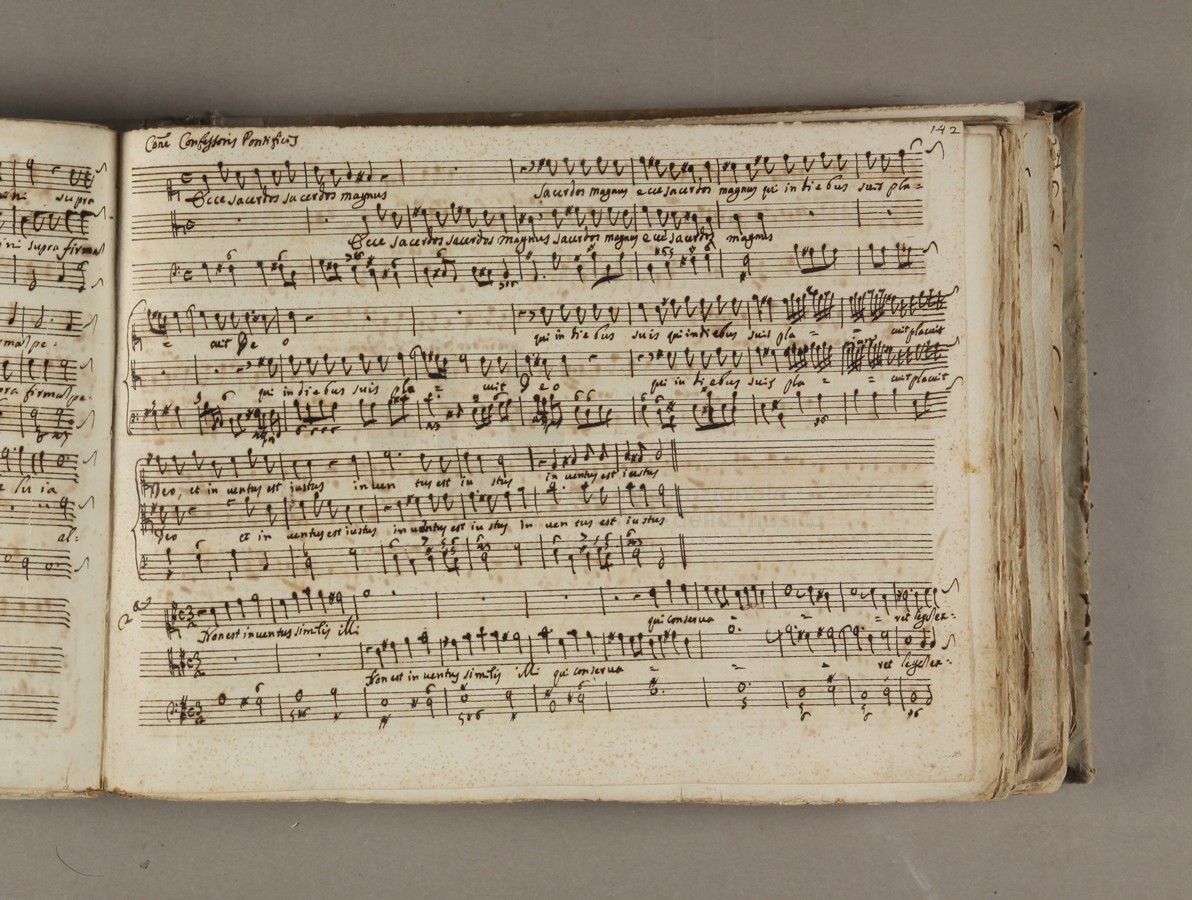 142
Com̃e Confessoris Pontificis
Ecce sacerdos sacerdos magnus sacerdos magnus ecce sacerdos magnus qui in diebus suis pla=
Ecce sacerdos sacerdos magnus sacerdos magnus ecce sacerdos magnus
= cuit De o qui in diebus suis qui in diebus suis pla = = cuit placuit
qui in diebus suis pla = cuit Deo qui in diebus suis pla = = cuit placuit
Deo, et in uentus est iustus in uen tus est iu stus in uentus est iustus
Deo et in uentus est iustus in uentus est iu stus in uen tus est iu stus
2a
Non est inuentus similis illi qui conserua = = = ret legẽ ex=
Non est in uentus similis illi qui conserua = = = ret legẽ ex=
supra
ini supra firma
pe=
pra firma pe
al=